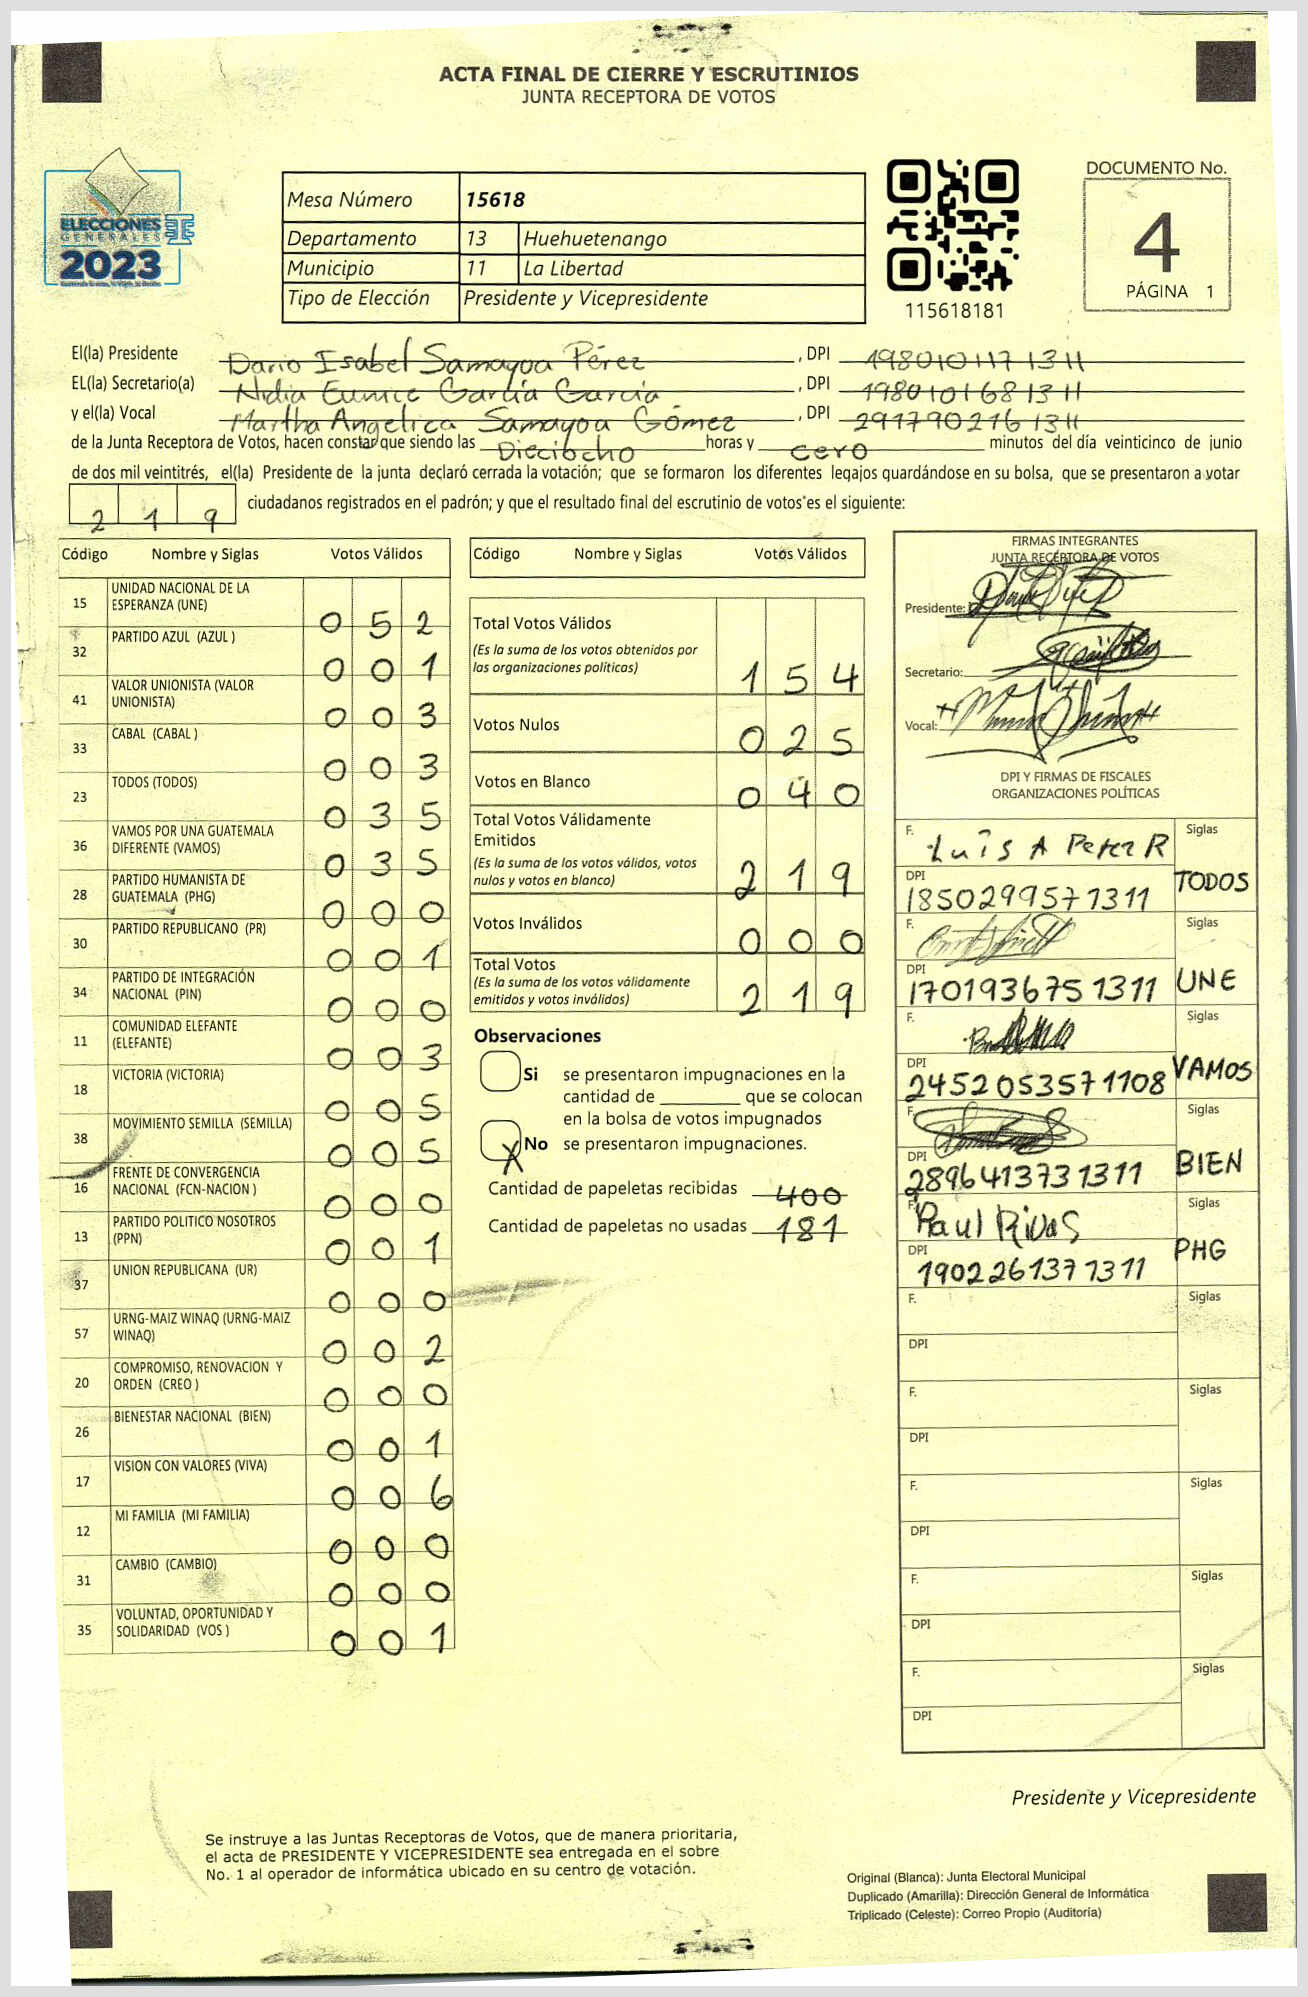 ACTA FINAL DE CIERRE Y ESCRUTINIOS
JUNTA RECEPTORA DE VOTOS
ELECCIONES
GENERALES
2023
Mesa Número 15618
Departamento 13 Huehuetenango
Municipio 11 La Libertad
Tipo de Elección Presidente y Vicepresidente
115618181
DOCUMENTO No.
4
PÁGINA 1
El(la) Presidente Dario Isabel Samayoa Pérez, DPI 1980101171311
EL(la) Secretario(a) Nidia Eunice García García, DPI 1980101681311
y el(la) Vocal Martha Angelica Samayoa Gómez, DPI 2917902161311
de la Junta Receptora de Votos, hacen constar que siendo las Dieciocho horas y cero minutos del día veinticinco de junio
de dos mil veintitrés, el(la) Presidente de la junta declaró cerrada la votación; que se formaron los diferentes legajos guardándose en su bolsa, que se presentaron a votar
219 ciudadanos registrados en el padrón; y que el resultado final del escrutinio de votos es el siguiente:
Código Nombre y Siglas Votos Válidos
15 UNIDAD NACIONAL DE LA ESPERANZA (UNE) 052
32 PARTIDO AZUL (AZUL ) 001
41 VALOR UNIONISTA (VALOR UNIONISTA) 003
33 CABAL (CABAL ) 003
23 TODOS (TODOS) 035
36 VAMOS POR UNA GUATEMALA DIFERENTE (VAMOS) 035
28 PARTIDO HUMANISTA DE GUATEMALA (PHG) 000
30 PARTIDO REPUBLICANO (PR) 001
34 PARTIDO DE INTEGRACIÓN NACIONAL (PIN) 000
11 COMUNIDAD ELEFANTE (ELEFANTE) 003
18 VICTORIA (VICTORIA) 005
38 MOVIMIENTO SEMILLA (SEMILLA) 005
16 FRENTE DE CONVERGENCIA NACIONAL (FCN-NACION ) 000
13 PARTIDO POLITICO NOSOTROS (PPN) 001
37 UNION REPUBLICANA (UR) 000
57 URNG-MAIZ WINAQ (URNG-MAIZ WINAQ) 002
20 COMPROMISO, RENOVACION Y ORDEN (CREO ) 000
26 BIENESTAR NACIONAL (BIEN) 001
17 VISION CON VALORES (VIVA) 006
12 MI FAMILIA (MI FAMILIA) 000
31 CAMBIO (CAMBIO) 000
35 VOLUNTAD, OPORTUNIDAD Y SOLIDARIDAD (VOS ) 001
Código Nombre y Siglas Votos Válidos
Total Votos Válidos 154
(Es la suma de los votos obtenidos por
las organizaciones políticas)
Votos Nulos 025
Votos en Blanco 040
Total Votos Válidamente
Emitidos 219
(Es la suma de los votos válidos, votos
nulos y votos en blanco)
Votos Inválidos 000
Total Votos 219
(Es la suma de los votos válidamente
emitidos y votos inválidos)
Observaciones
Si se presentaron impugnaciones en la
cantidad de ________ que se colocan
en la bolsa de votos impugnados
X No se presentaron impugnaciones.
Cantidad de papeletas recibidas 400
Cantidad de papeletas no usadas 181
FIRMAS INTEGRANTES
JUNTA RECEPTORA DE VOTOS
Presidente:
Secretario:
Vocal:
DPI Y FIRMAS DE FISCALES
ORGANIZACIONES POLÍTICAS
F. Luis A Perez R Siglas
DPI 1850299571311 TODOS
F. Siglas
DPI 1701936751311 UNE
F. Siglas
DPI 2452053571108 VAMOS
F. Siglas
DPI 2896413731311 BIEN
F. Raul Rivas Siglas
DPI 1902261371311 PHG
F. Siglas
DPI
F. Siglas
DPI
F. Siglas
DPI
F. Siglas
DPI
F. Siglas
DPI
Presidente y Vicepresidente
Se instruye a las Juntas Receptoras de Votos, que de manera prioritaria,
el acta de PRESIDENTE Y VICEPRESIDENTE sea entregada en el sobre
No. 1 al operador de informática ubicado en su centro de votación.
Original (Blanca): Junta Electoral Municipal
Duplicado (Amarilla): Dirección General de Informática
Triplicado (Celeste): Correo Propio (Auditoría)